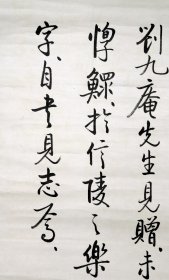 劉九庵先生見贈、未
惸鰥、於信陵之樂
字、自书見志焉、